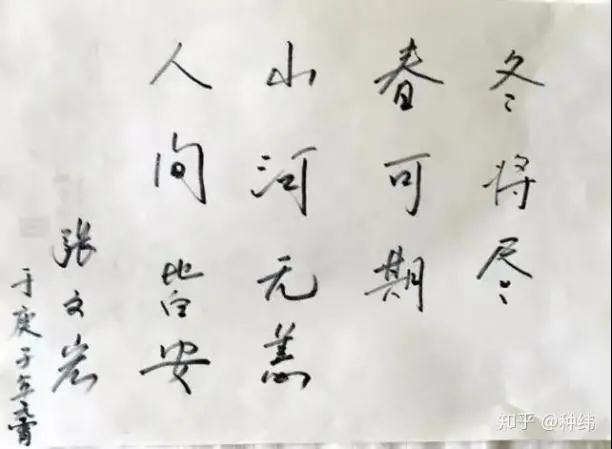 冬将尽
春可期
山河无恙
人间皆安
张文宏
于庚子年元宵
知乎 @种纬